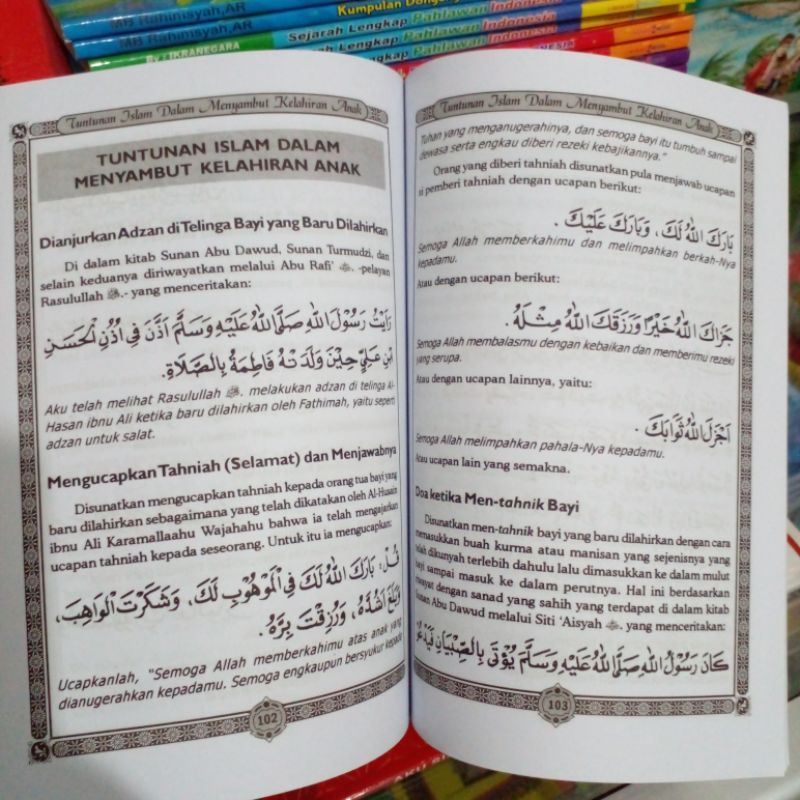 MB Rahimsyah,AR
Kumpulan
MB Rahimsyah,AR
Sejarah Lengkap Pahlawan Indonesia
By : IKRANEGARA
Sejarah Lengkap Pahlawan Indonesia
Tuntunan Islam Dalam Menyambut Kelahiran Anak
TUNTUNAN ISLAM DALAM
MENYAMBUT KELAHIRAN ANAK
Dianjurkan Adzan di Telinga Bayi yang Baru Dilahirkan
Di dalam kitab Sunan Abu Dawud, Sunan Turmudzi, dan
selain keduanya diriwayatkan melalui Abu Rafi' ﷺ. -pelayan
Rasulullah ﷺ.- yang menceritakan:
رَأَيْتُ رَسُوْلَ اللهِ صَلَّى اللهُ عَلَيْهِ وَسَلَّمَ أَذَّنَ فِي أُذُنِ الْحَسَنِ
ابْنِ عَلِيٍّ حِيْنَ وَلَدَتْهُ فَاطِمَةُ بِالصَّلَاةِ.
Aku telah melihat Rasulullah ﷺ. melakukan adzan di telinga Al-
Hasan ibnu Ali ketika baru dilahirkan oleh Fathimah, yaitu seperti
adzan untuk salat.
Mengucapkan Tahniah (Selamat) dan Menjawabnya
Disunatkan mengucapkan tahniah kepada orang tua bayi yang
baru dilahirkan sebagaimana yang telah dikatakan oleh Al-Husain
ibnu Ali Karamallaahu Wajahahu bahwa ia telah mengajarkan
ucapan tahniah kepada seseorang. Untuk itu ia mengucapkan:
قُلْ: بَارَكَ اللهُ لَكَ فِي الْمَوْهُوْبِ لَكَ، وَشَكَرْتَ الْوَاهِبَ،
وَبَلَغَ أَشُدَّهُ، وَرُزِقْتَ بِرَّهُ.
Ucapkanlah, "Semoga Allah memberkahimu atas anak yang
dianugerahkan kepadamu. Semoga engkaupun bersyukur kepada
102
Tuntunan Islam Dalam Menyambut Kelahiran Anak
Tuhan yang menganugerahinya, dan semoga bayi itu tumbuh sampai
dewasa serta engkau diberi rezeki kebajikannya."
Orang yang diberi tahniah disunatkan pula menjawab ucapan
si pemberi tahniah dengan ucapan berikut:
بَارَكَ اللهُ لَكَ، وَبَارَكَ عَلَيْكَ.
Semoga Allah memberkahimu dan melimpahkan berkah-Nya
kepadamu.
Atau dengan ucapan berikut:
جَزَاكَ اللهُ خَيْرًا وَرَزَقَكَ اللهُ مِثْلَهُ.
Semoga Allah membalasmu dengan kebaikan dan memberimu rezeki
yang serupa.
Atau dengan ucapan lainnya, yaitu:
أَجْزَلَ اللهُ ثَوَابَكَ.
Semoga Allah melimpahkan pahala-Nya kepadamu.
Atau ucapan lain yang semakna.
Doa ketika Men-tahnik Bayi
Disunatkan men-tahnik bayi yang baru dilahirkan dengan cara
memasukkan buah kurma atau manisan yang sejenisnya yang
telah dikunyah terlebih dahulu lalu dimasukkan ke dalam mulut
bayi sampai masuk ke dalam perutnya. Hal ini berdasarkan
riwayat dengan sanad yang sahih yang terdapat di dalam kitab
Sunan Abu Dawud melalui Siti 'Aisyah yang menceritakan:
كَانَ رَسُوْلُ اللهِ صَلَّى اللهُ عَلَيْهِ وَسَلَّمَ يُؤْتَى بِالصِّبْيَانِ
103